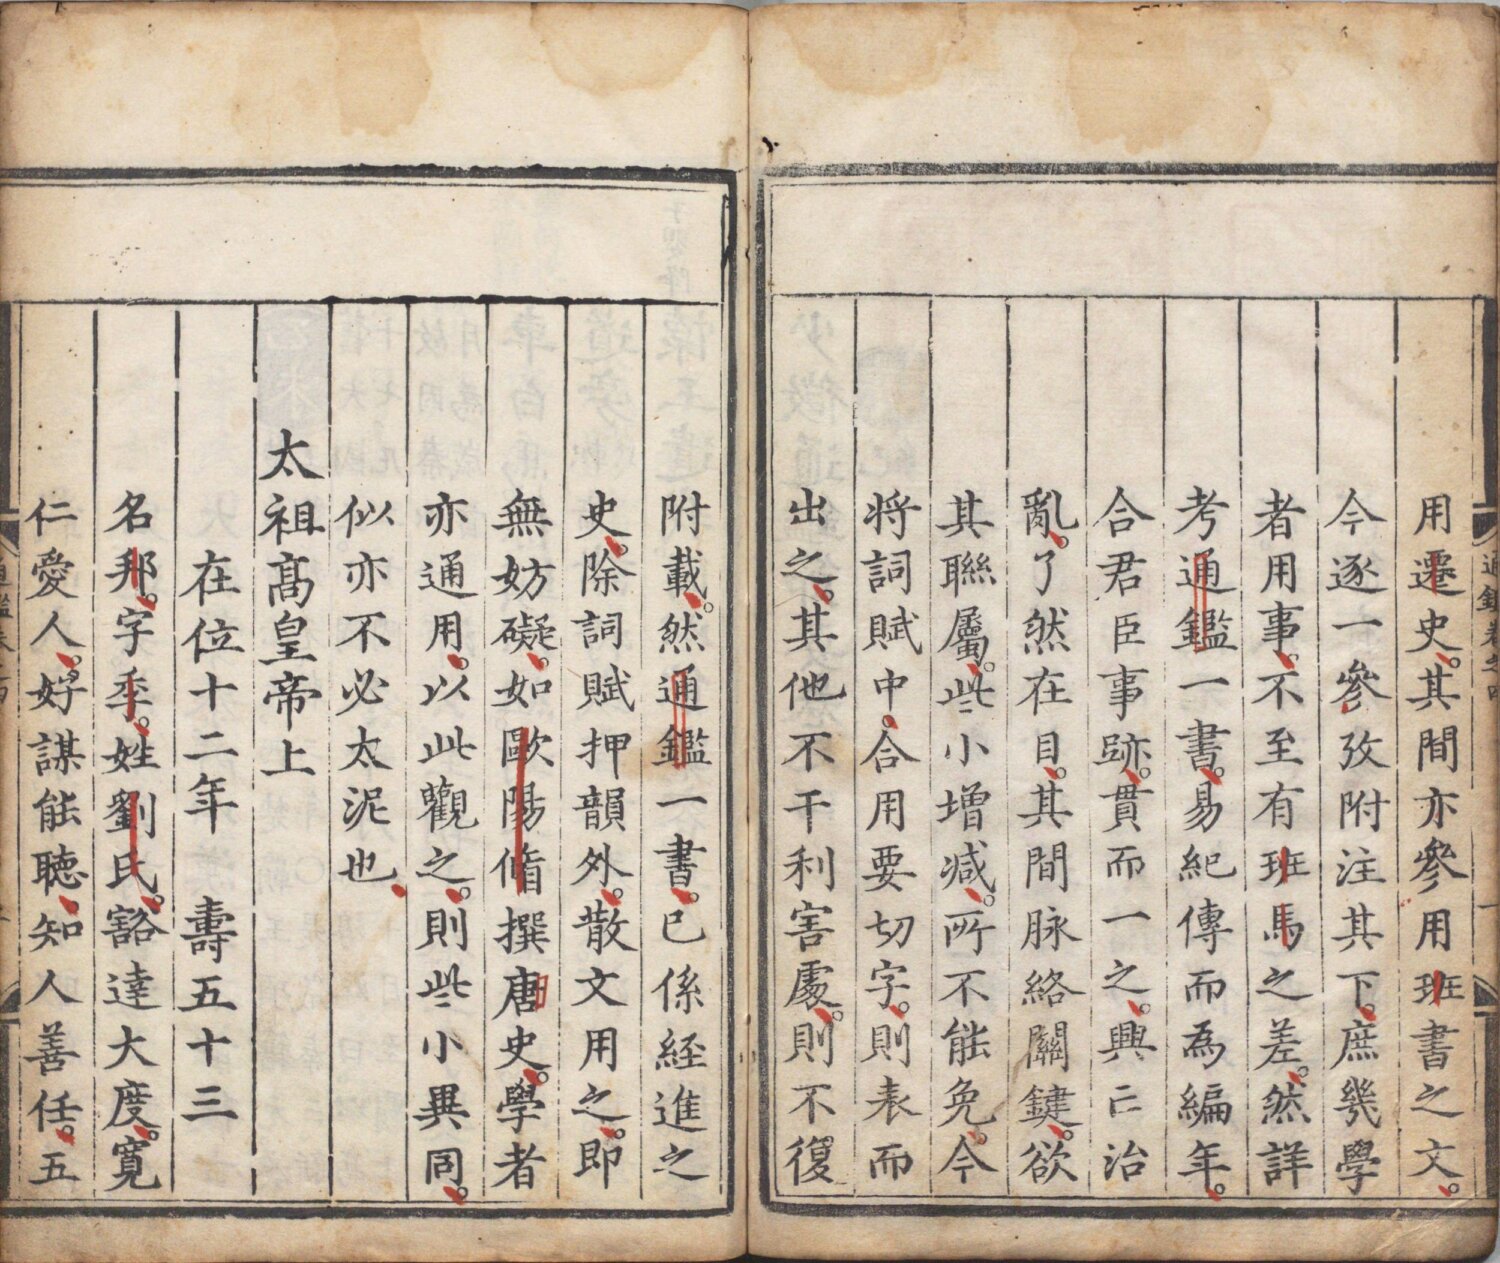 用遷史其間亦參用班書之文
今逐一參攷附注其下庶幾學
者用事不至有班馬之差然詳
考通鑑一書易紀傳而為編年
合君臣事跡貫而一之興亡治
亂了然在目其間脉絡關鍵欲
其聯屬些小增减所不能免今
将詞賦中合用要切字則表而
出之其他不干利害處則不復
附載然通鑑一書已係經進之
史除詞賦押韻外散文用之即
無妨礙如歐陽脩撰唐史學者
亦通用以此觀之則些小異同
似亦不必太泥也
太祖高皇帝上
在位十二年 壽五十三
名邦字季姓劉氏豁達大度寬
仁愛人好謀能聽知人善任五
通鑑卷之四 一
通鑑卷之四